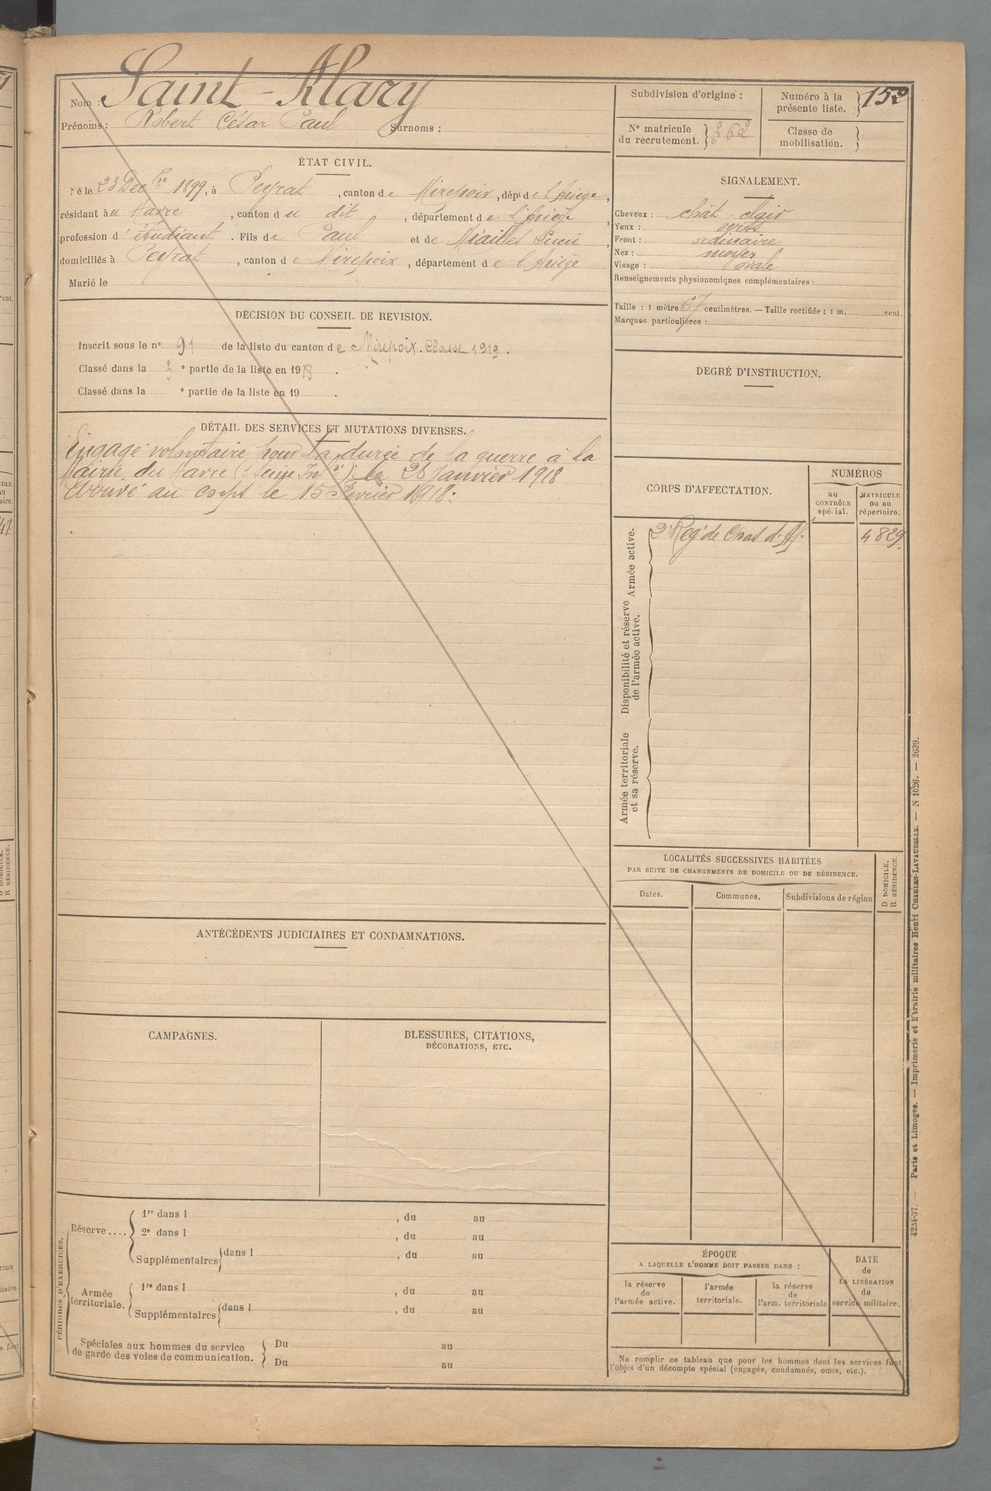 Nom : Saint-Alary
Prénoms : Robert César Paul Surnoms :
ÉTAT CIVIL.
Né le 23 Dec bre 1899, à Peyrat, canton de Mirepoix, dépt de l'Ariège,
résidant au Havre, canton du dit, département de
profession d'étudiant. Fils de Paul et de Miailles Lucie,
domiciliés à Peyrat, canton de Mirepoix, département de l'Ariège
Marié le
DÉCISION DU CONSEIL DE REVISION.
Inscrit sous le n° 91 de la liste du canton de Mirepoix. Classe 1919.
Classé dans la 3e partie de la liste en 1918.
Classé dans la e partie de la liste en 19 .
DÉTAIL DES SERVICES ET MUTATIONS DIVERSES.
Engagé volontaire pour la durée de la guerre à la
Mairie du Havre (Seine Inf re) le 26 Janvier 1918
au corps le 15 Février 1918.
ANTÉCÉDENTS JUDICIAIRES ET CONDAMNATIONS.
CAMPAGNES.
BLESSURES, CITATIONS,
DÉCORATIONS, ETC.
PÉRIODES D'EXERCICES.
Réserve ....
1re dans l , du au
2e dans l , du au
Supplémentaires dans l , du au
Armée
territoriale.
1re dans l , du au
Supplémentaires dans l , du au
Spéciales aux hommes du service
de garde des voies de communication.
Du au
Du au
Subdivision d'origine :
Numéro à la
présente liste. 152
N° matricule
du recrutement. 262
Classe de
mobilisation.
SIGNALEMENT.
Cheveux : chât clair
Yeux : verts
Front : ordinaire
Nez : moyen
Visage : ovale
Renseignements physionomiques complémentaires :
Taille : 1 mètre 67 centimètres. — Taille rectifiée : 1 m. cent.
Marques particulières :
DEGRÉ D'INSTRUCTION.
CORPS D'AFFECTATION.
NUMÉROS
au
CONTRÔLE
spécial.
MATRICULE
ou au
répertoire.
Armée active.
2e Reg t de Chas d'Af. 4829
Disponibilité et réserve
de l'armée active.
Armée territoriale
et sa réserve.
LOCALITÉS SUCCESSIVES HABITÉES
PAR SUITE DE CHANGEMENTS DE DOMICILE OU DE RÉSIDENCE.
Dates.
Communes.
Subdivisions de région
D DOMICILE.
R RÉSIDENCE.
ÉPOQUE
A LAQUELLE L'HOMME DOIT PASSER DANS :
la réserve
de
l'armée active.
l'armée
territoriale.
la réserve
de
l'arm. territoriale
DATE
de
LA LIBÉRATION
du
service militaire.
Ne remplir ce tableau que pour les hommes dont les services font
l'objet d'un décompte spécial (engagés, condamnés, omis, etc.).
Paris et Limoges. — Imprimerie et librairie militaires Henri CHARLES-LAVAUZELLE. — N 1026. — 2639.